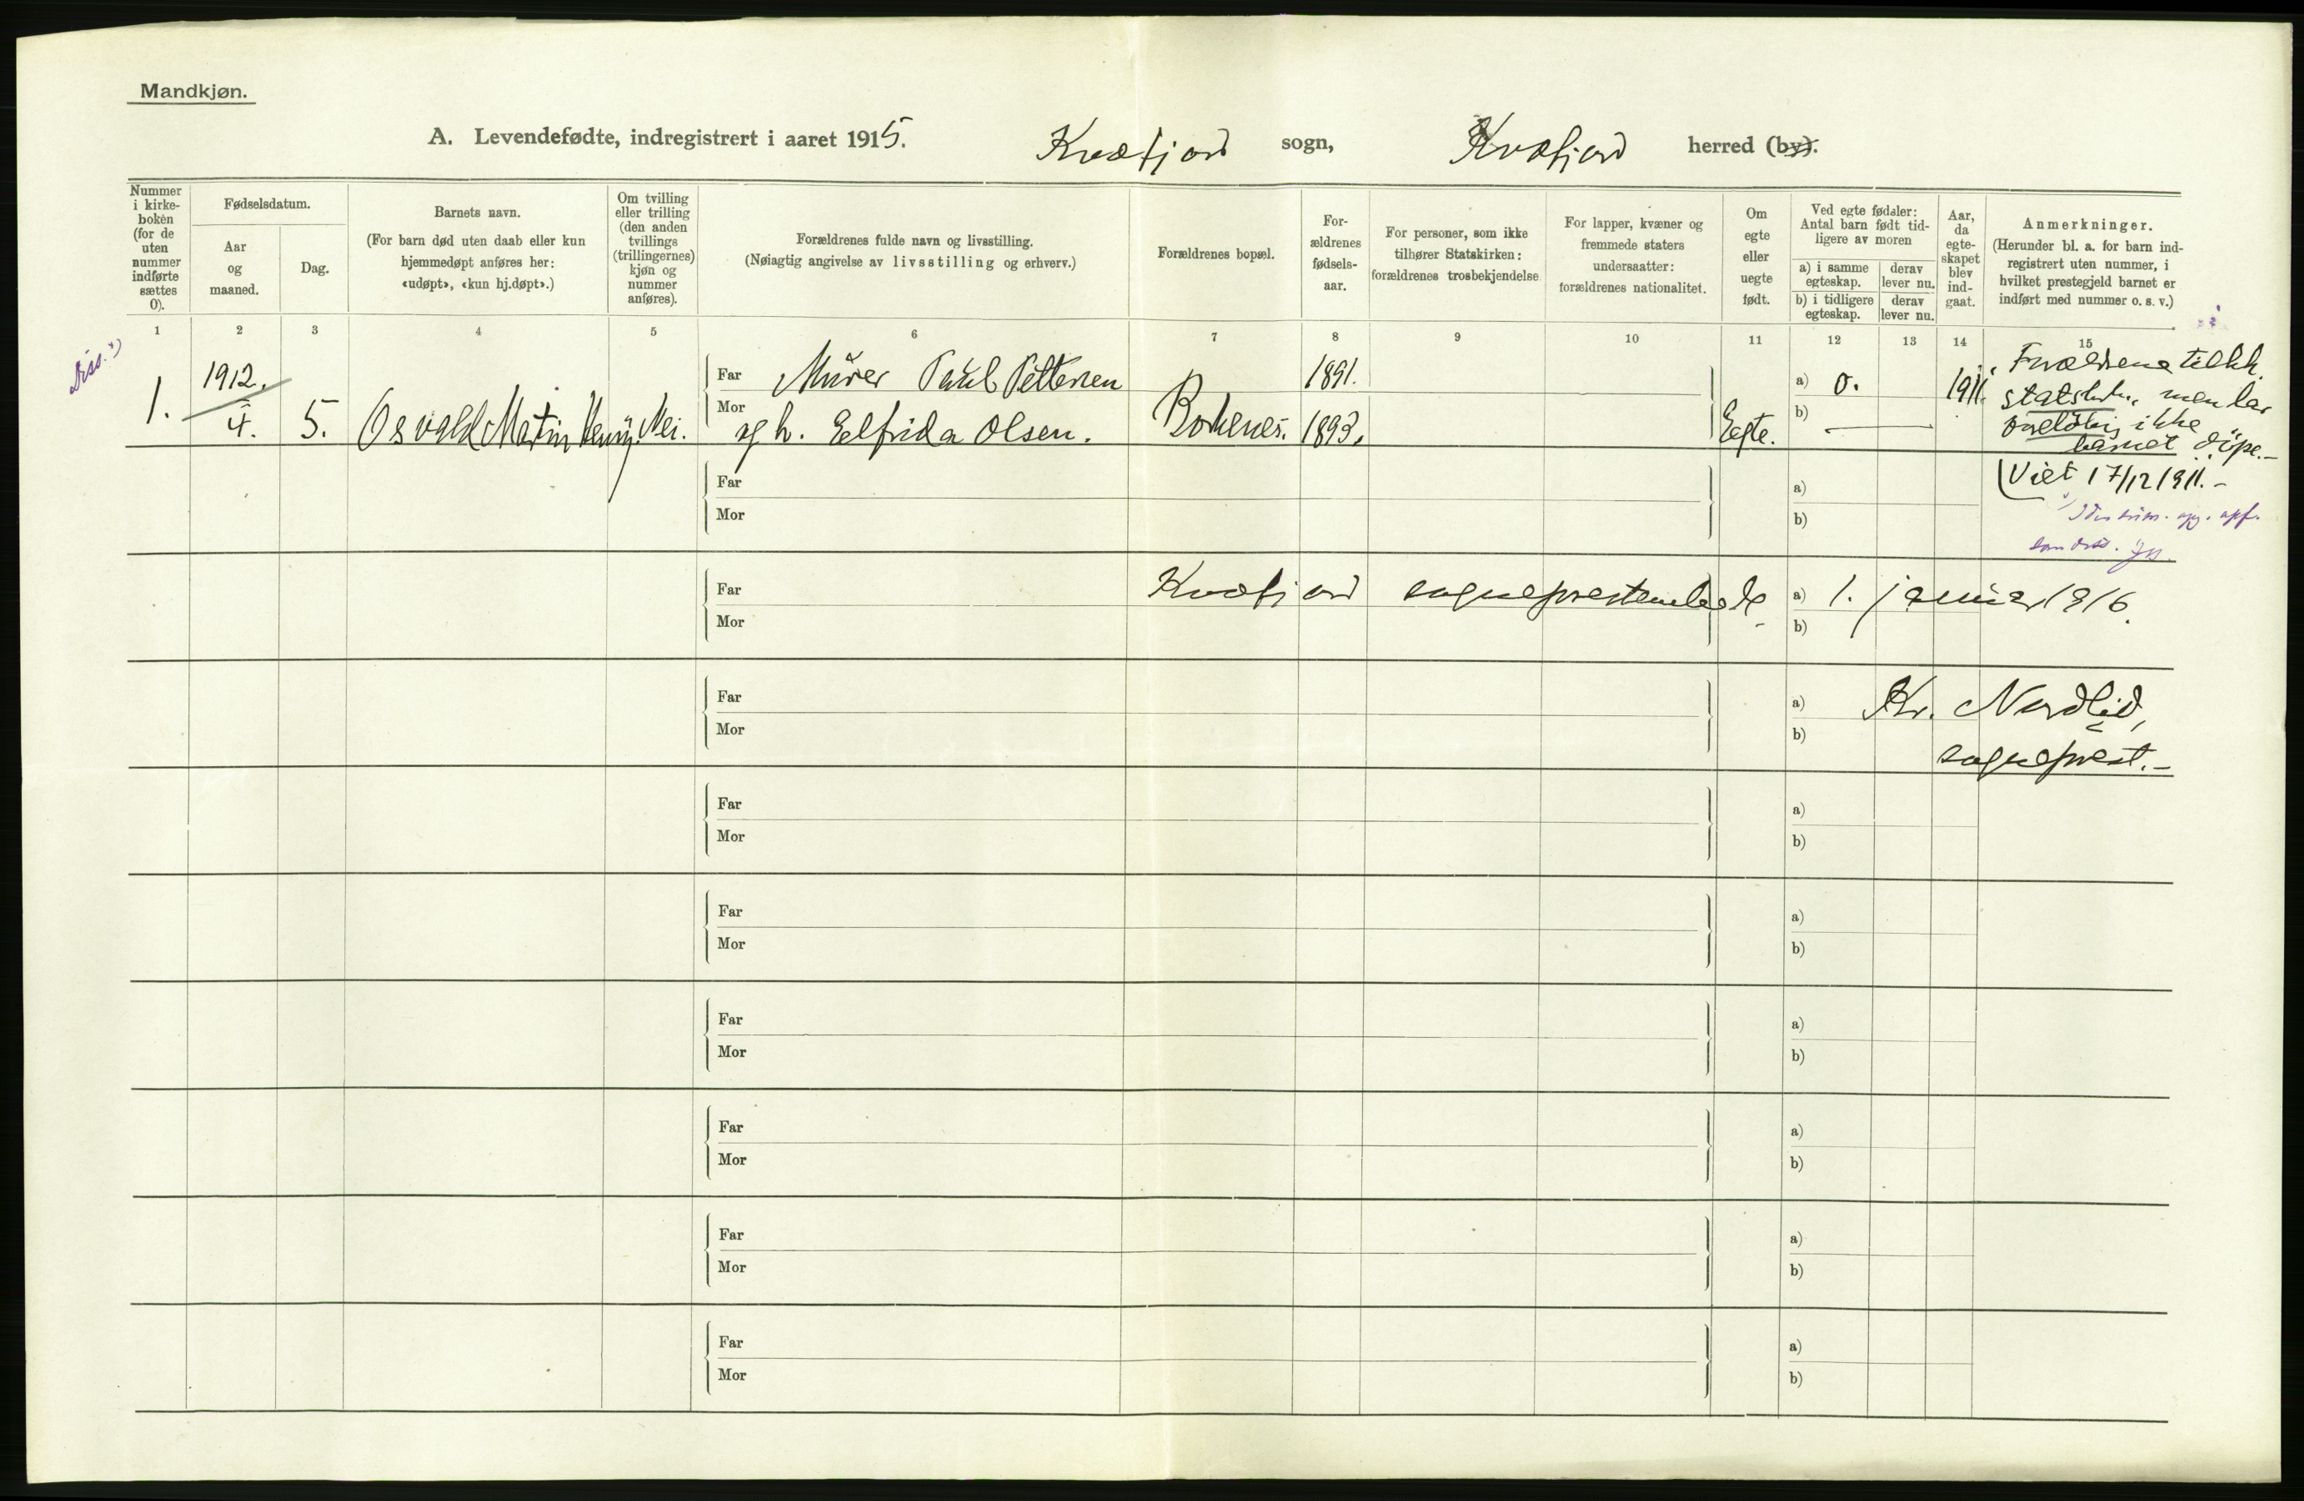 Mandkjøn.
A. Levendefødte, indregistrert i aaret 1915. Kvæfjord sogn, Kvæfjord herred (by).
Nummer
i kirke-
boken
(for de
uten
nummer
indførte
sættes
0).
Fødselsdatum.
Aar
og
maaned.
Dag.
Barnets navn.
(For barn død uten daab eller kun
hjemmedøpt anføres her:
«udøpt», «kun hj.døpt».)
Om tvilling
eller trilling
(den anden
tvillings
(trillingernes)
kjøn og
nummer
anføres).
Forældrenes fulde navn og livsstilling.
(Nøiagtig angivelse av livsstilling og erhverv.)
Forældrenes bopæl.
For-
ældrenes
fødsels-
aar.
For personer, som ikke
tilhører Statskirken:
forældrenes trosbekjendelse
For lapper, kvæner og
fremmede staters
undersaatter:
forældrenes nationalitet.
Om
egte
eller
uegte
født.
Ved egte fødsler:
Antal barn født tid-
ligere av moren
a) i samme
egteskap.
derav
lever nu.
b) i tidligere
egteskap.
derav
lever nu.
Aar,
da
egte-
skapet
blev
ind-
gaat.
Anmerkninger.
(Herunder bl. a. for barn ind-
registrert uten nummer, i
hvilket prestegjeld barnet er
indført med nummer o. s. v.)
1 2 3 4 5 6 7 8 9 10 11 12 13 14 15
Diss.
1. 1912. 4. 5. Osvald Martin Henry. Nei.
Far Mürer Paul Pettersen 1891.
Mor og h. Elfrida Olsen. Borkenes. 1893. Egte.
a) 0. 1911.
b)
Forældrene tilhh.
statsk., men lar
foreløbig ikke
barnet døpe.—
(Viet 17/12 1911.—
Far
Mor
a)
b)
Far
Mor
Kvæfjord sogneprestembede a) 1. januar 1916.
b)
Far
Mor
a) Kr. Nordlid,
b) sogneprest.—
Far
Mor
a)
b)
Far
Mor
a)
b)
Far
Mor
a)
b)
Far
Mor
a)
b)
Far
Mor
a)
b)
Far
Mor
a)
b)